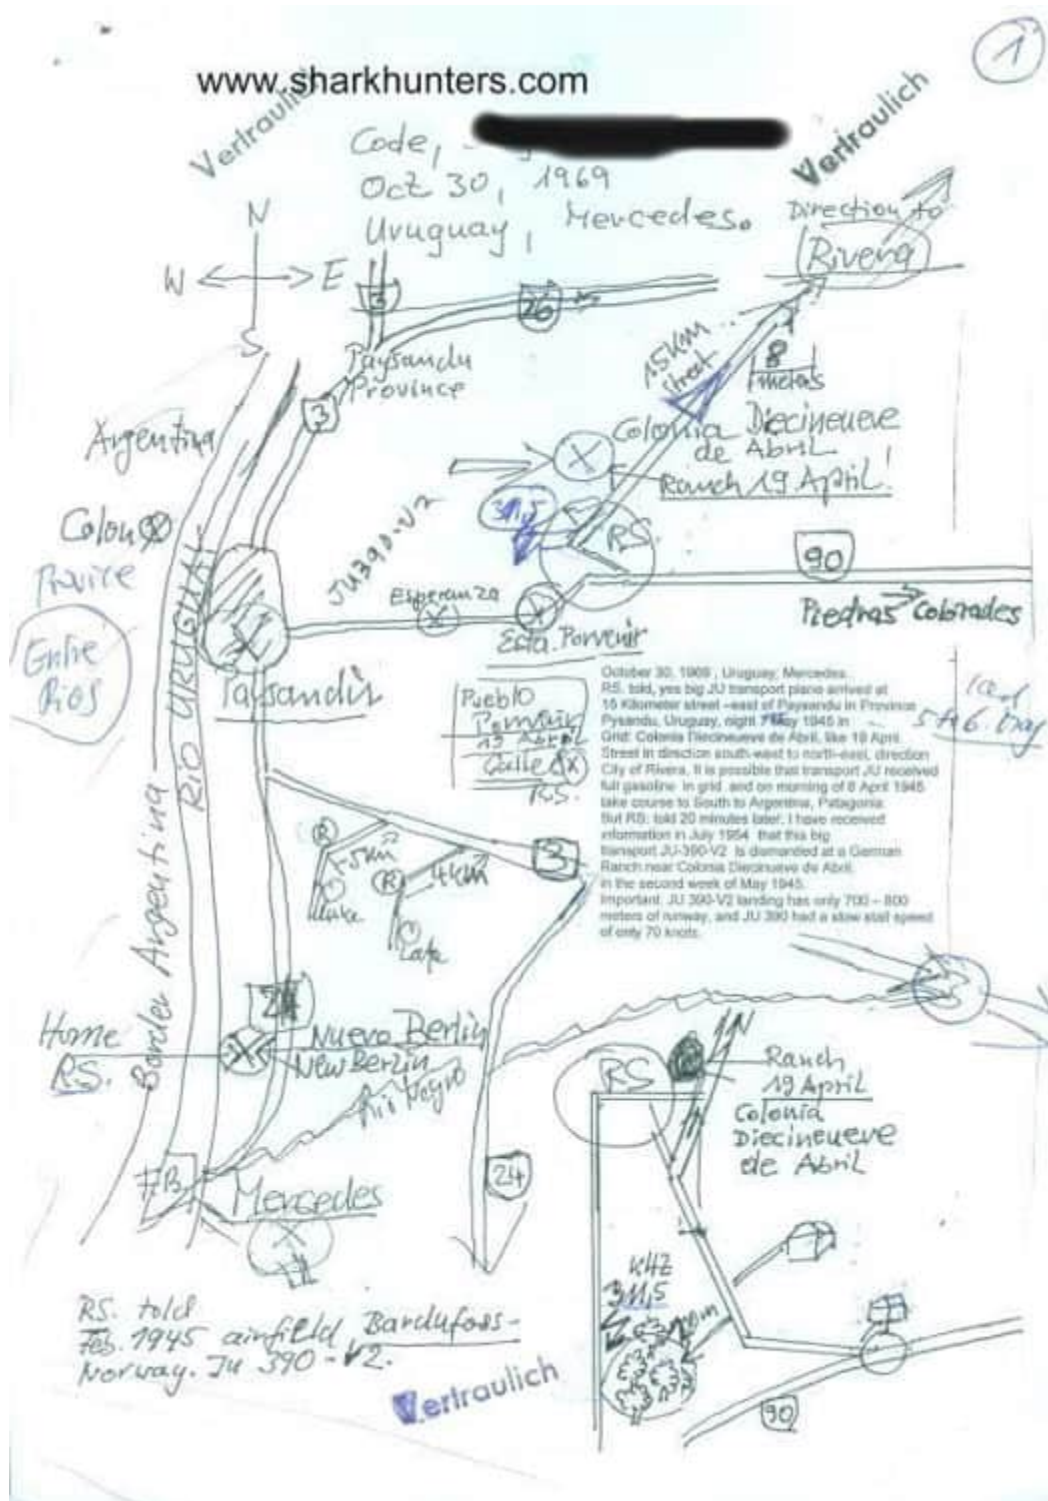 1
www.sharkhunters.com
Vertraulich
Vertraulich
Code,
Oct 30, 1969
Uruguay, Mercedes.
Direction to
Rivera
N
W E
S
3
26
Paysandu
Province
3
15Km
street
8
meters
Argentina
Colonia Diecineueve
de Abril
Ranch 19 April!
Colon
JU390-V2
311,5
RS.
90
Entre
Rios
Esperanza
Esta. Porvenir
Piedras Colorades
RIO URUGUAY
Paysandu
Pueblo
19 Abril
Calle
RS.
October 30, 1969, Uruguay, Mercedes.
RS. told, yes big JU transport plane arrived at
15 Kilometer street –east of Paysandu in Province
Pysandu, Uruguay, night May 1945 in
Grid: Colonia Diecineueve de Abril, like 19 April
Street in direction south-west to north-east, direction
City of Rivera. It is possible that transport JU received
full gasoline in grid and on morning of 8 April 1945
take course to South to Argentina, Patagonia.
But RS: told 20 minutes later: I have received
information in July 1954 that this big
transport JU-390-V2 is dismanded at a German
Ranch near Colonia Diecinueve de Abril.
in the second week of May 1945.
Important: JU 390-V2 landing has only 700 – 800
meters of runway, and JU 390 had a slow stall speed
of only 70 knots.
5 to 6. May
R
R
4Km
3
Border Argentina
24
Home
RS.
Nuevo Berlin
New Berlin
Rio Negro
N
RS
Ranch
19 April
Colonia
Diecineueve
de Abril
24
Mercedes
KHZ
311,5
90
RS. told
Feb. 1945 airfield Bardufoss-
Norway. Ju 390-V2.
Vertraulich